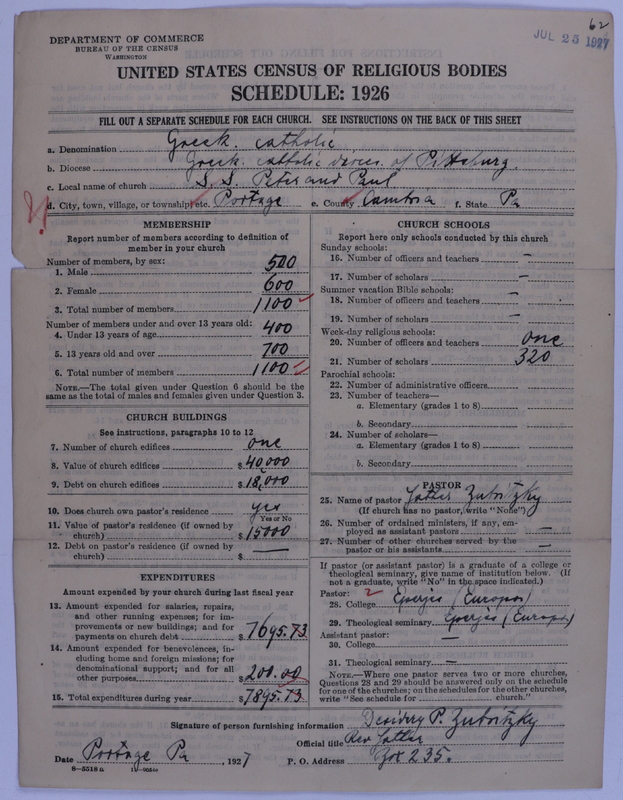 62
JUL 25 1927
DEPARTMENT OF COMMERCE
BUREAU OF THE CENSUS
WASHINGTON
UNITED STATES CENSUS OF RELIGIOUS BODIES
SCHEDULE: 1926
FILL OUT A SEPARATE SCHEDULE FOR EACH CHURCH. SEE INSTRUCTIONS ON THE BACK OF THIS SHEET
a. Denomination Greek catholic
b. Diocese Greek catholic dioces. of Pittsburg.
c. Local name of church S. S. Peter and Paul
d. City, town, village, or township, etc. Portage e. County Cambria f. State Pa
MEMBERSHIP
Report number of members according to definition of
member in your church
Number of members, by sex:
1. Male 500
2. Female 600
3. Total number of members 1100
Number of members under and over 13 years old:
4. Under 13 years of age 400
5. 13 years old and over 700
6. Total number of members 1100
NOTE.—The total given under Question 6 should be the
same as the total of males and females given under Question 3.
CHURCH BUILDINGS
See instructions, paragraphs 10 to 12
7. Number of church edifices one
8. Value of church edifices $ 40,000
9. Debt on church edifices $ 18,000
10. Does church own pastor's residence yes
Yes or No
11. Value of pastor's residence (if owned by
church) $ 15000
12. Debt on pastor's residence (if owned by
church) $ —
EXPENDITURES
Amount expended by your church during last fiscal year
13. Amount expended for salaries, repairs,
and other running expenses; for im-
provements or new buildings; and for
payments on church debt $ 7695.73
14. Amount expended for benevolences, in-
cluding home and foreign missions; for
denominational support; and for all
other purposes $ 200.00
15. Total expenditures during year $ 7895.73
CHURCH SCHOOLS
Report here only schools conducted by this church
Sunday schools:
16. Number of officers and teachers —
17. Number of scholars —
Summer vacation Bible schools:
18. Number of officers and teachers —
19. Number of scholars —
Week-day religious schools:
20. Number of officers and teachers one
21. Number of scholars 320
Parochial schools:
22. Number of administrative officers
23. Number of teachers—
a. Elementary (grades 1 to 8)
b. Secondary
24. Number of scholars—
a. Elementary (grades 1 to 8)
b. Secondary
PASTOR
25. Name of pastor Father Zubritzky
(If church has no pastor, write "None")
26. Number of ordained ministers, if any, em-
ployed as assistant pastors —
27. Number of other churches served by the
pastor or his assistants —
If pastor (or assistant pastor) is a graduate of a college or
theological seminary, give name of institution below. (If
not a graduate, write "No" in the space indicated.)
Pastor: 2
28. College Eperjes (Europos)
29. Theological seminary Eperjes (Europos)
Assistant pastor: —
30. College
31. Theological seminary —
NOTE.—Where one pastor serves two or more churches,
Questions 28 and 29 should be answered only on the schedule
for one of the churches; on the schedules for the other churches,
write "See schedule for church."
Signature of person furnishing information Desidery P. Zubritzky
Official title Rev Father
Date Portage Pa , 1927 P. O. Address Box 235.
8—5518a